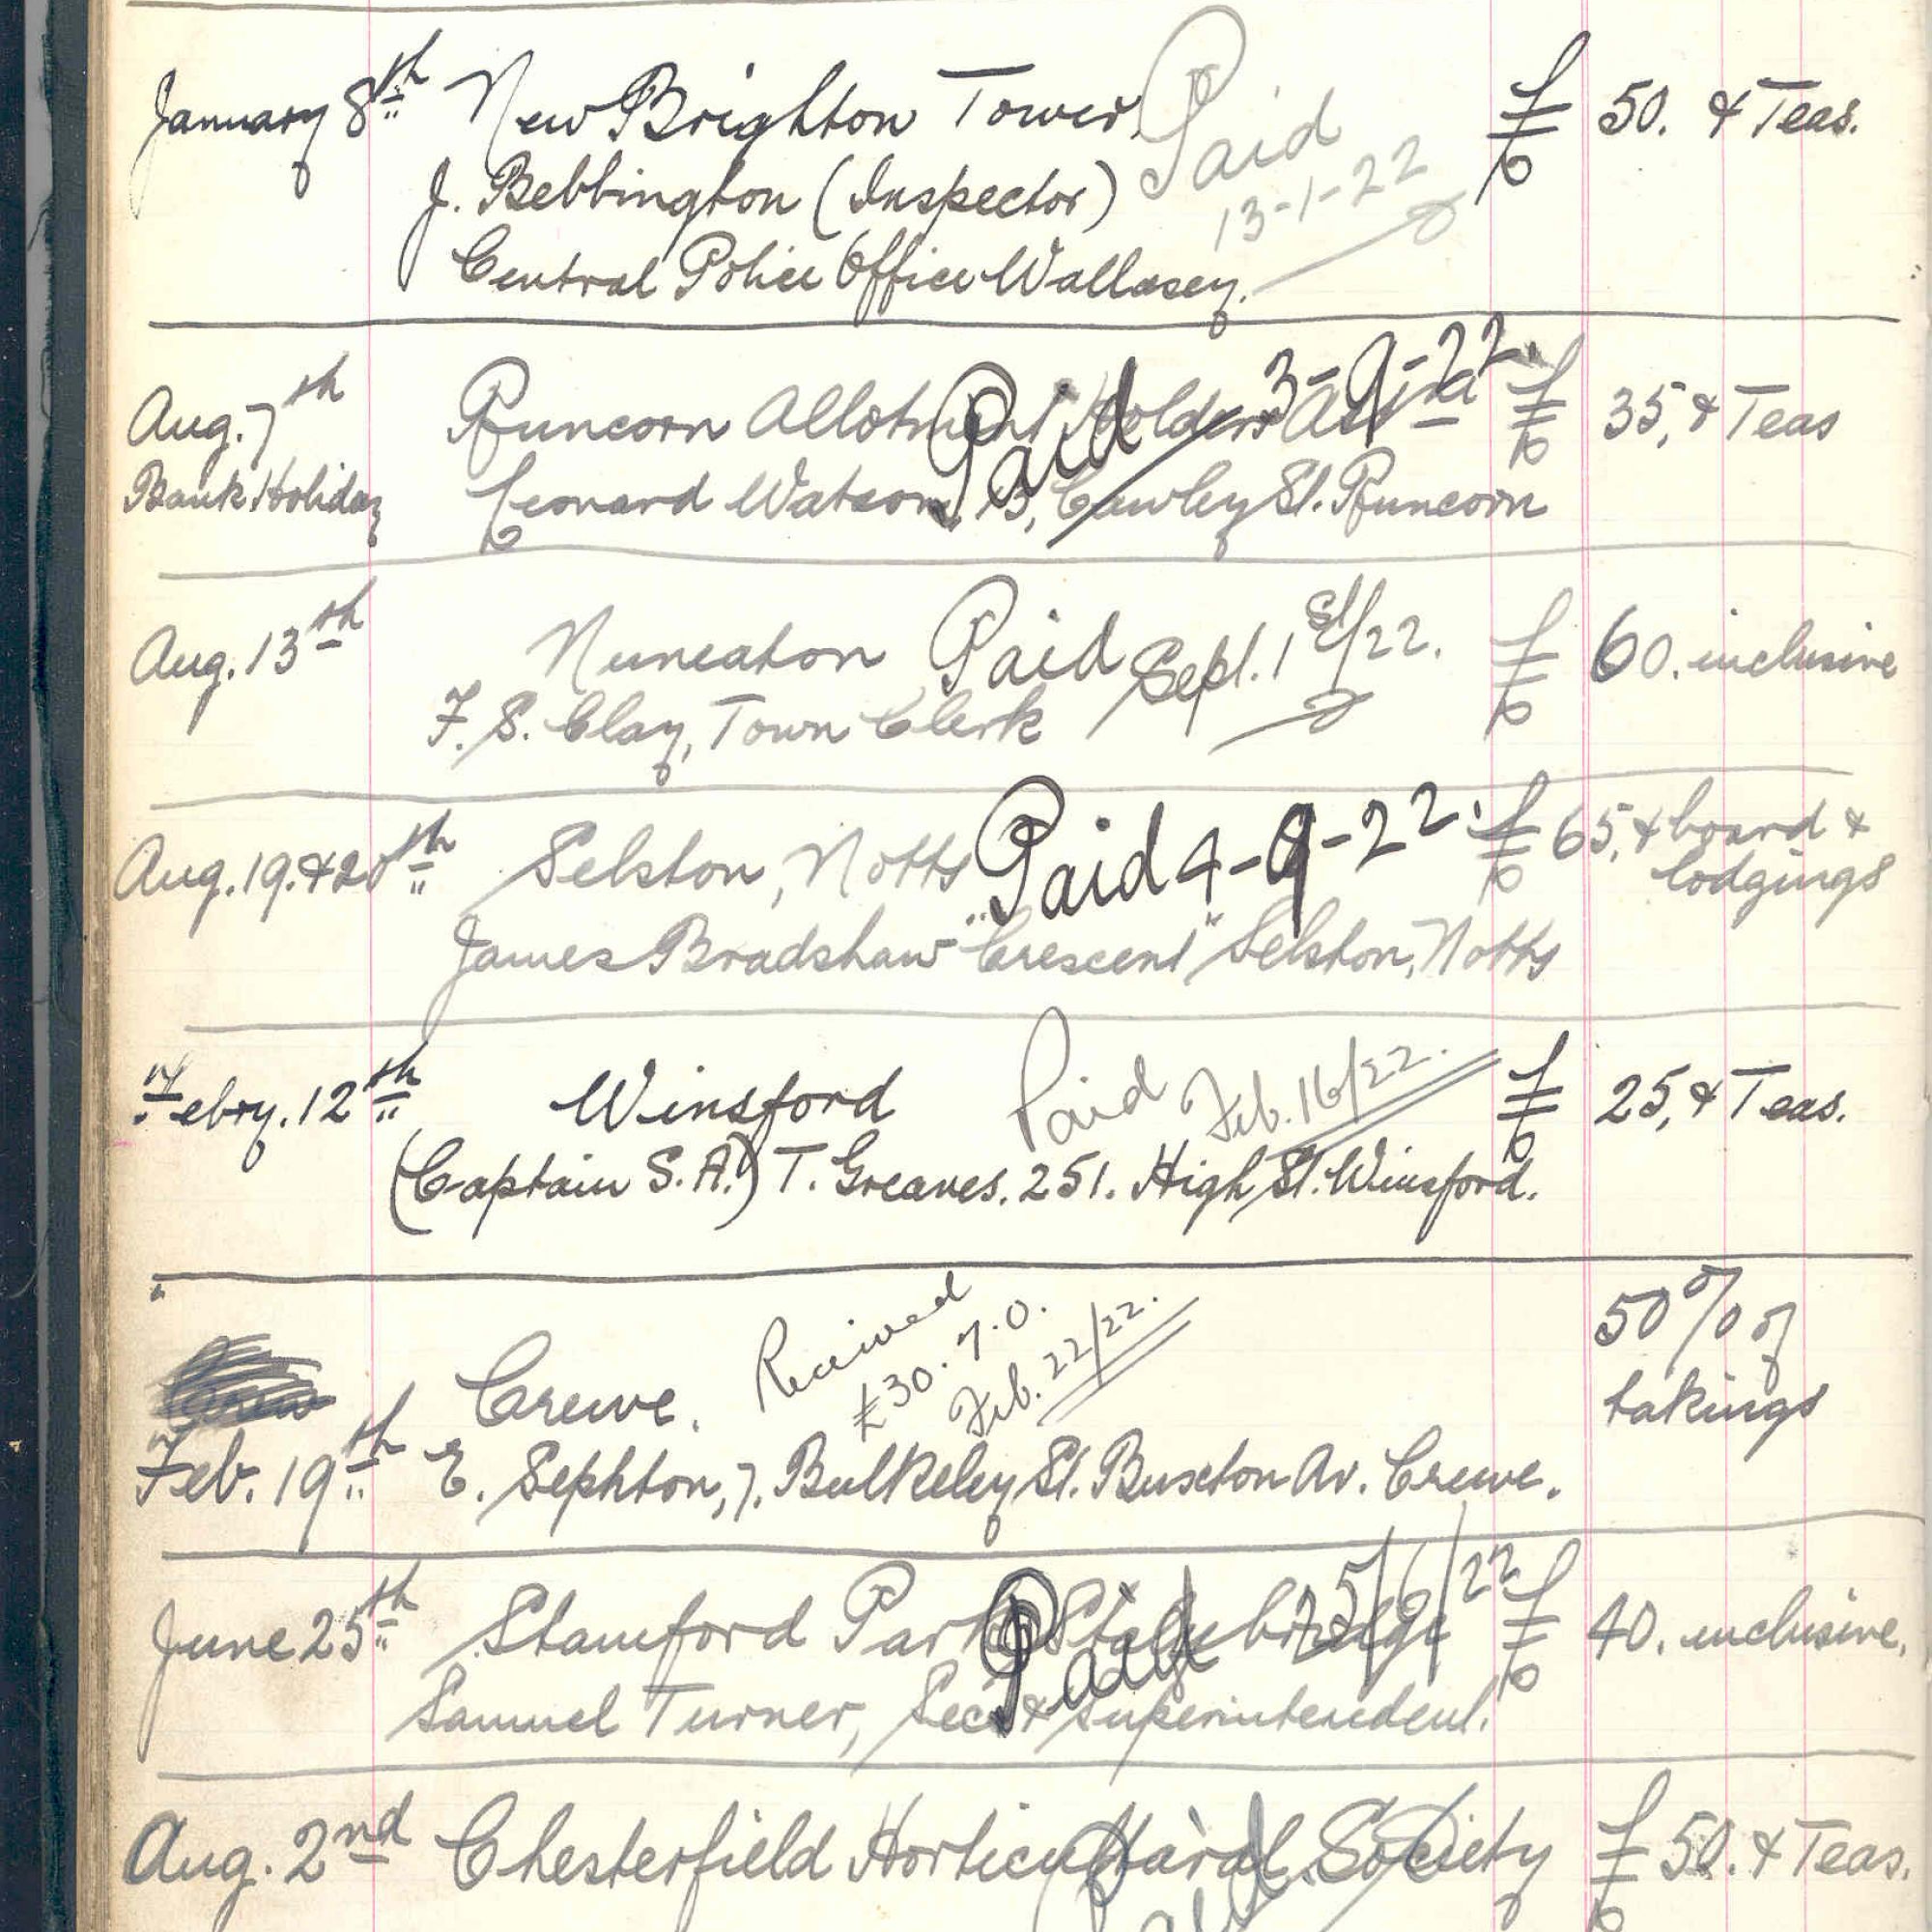 January 8th New Brighton Tower, Paid £ 50. & Teas.
J. Bebbington (Inspector) 13-1-22
Central Police Office Wallasey.
Aug. 7th Runcorn Allotment Holders Ass. Paid 3-9-22. £ 35, & Teas
Bank Holiday Leonard Watson, 13, Cawley St. Runcorn
Aug. 13th Nuneaton Paid Sept. 1st/22. £ 60. inclusive
F. S. Clay, Town Clerk
Aug. 19. & 20th Selston, Notts Paid 4-9-22. £ 65, & board &
lodgings
James Bradshaw "Crescent" Selston, Notts
Febry. 12th Winsford Paid Feb. 16/22. £ 25, & Teas.
(Captain S.A.) T. Greaves. 251. High St. Winsford.
"
Received 50% of
Crewe. £30. 7. 0. takings
Feb. 22/22.
Feb. 19th E. Sephton, 7. Bulkeley St. Buxton Av. Crewe.
June 25th Stamford Park Stalybridge Paid 25/6/22 £ 40. inclusive.
Samuel Turner, Sec & Superintendent.
Aug. 2nd Chesterfield Horticultural Society £ 50. & Teas.
Paid